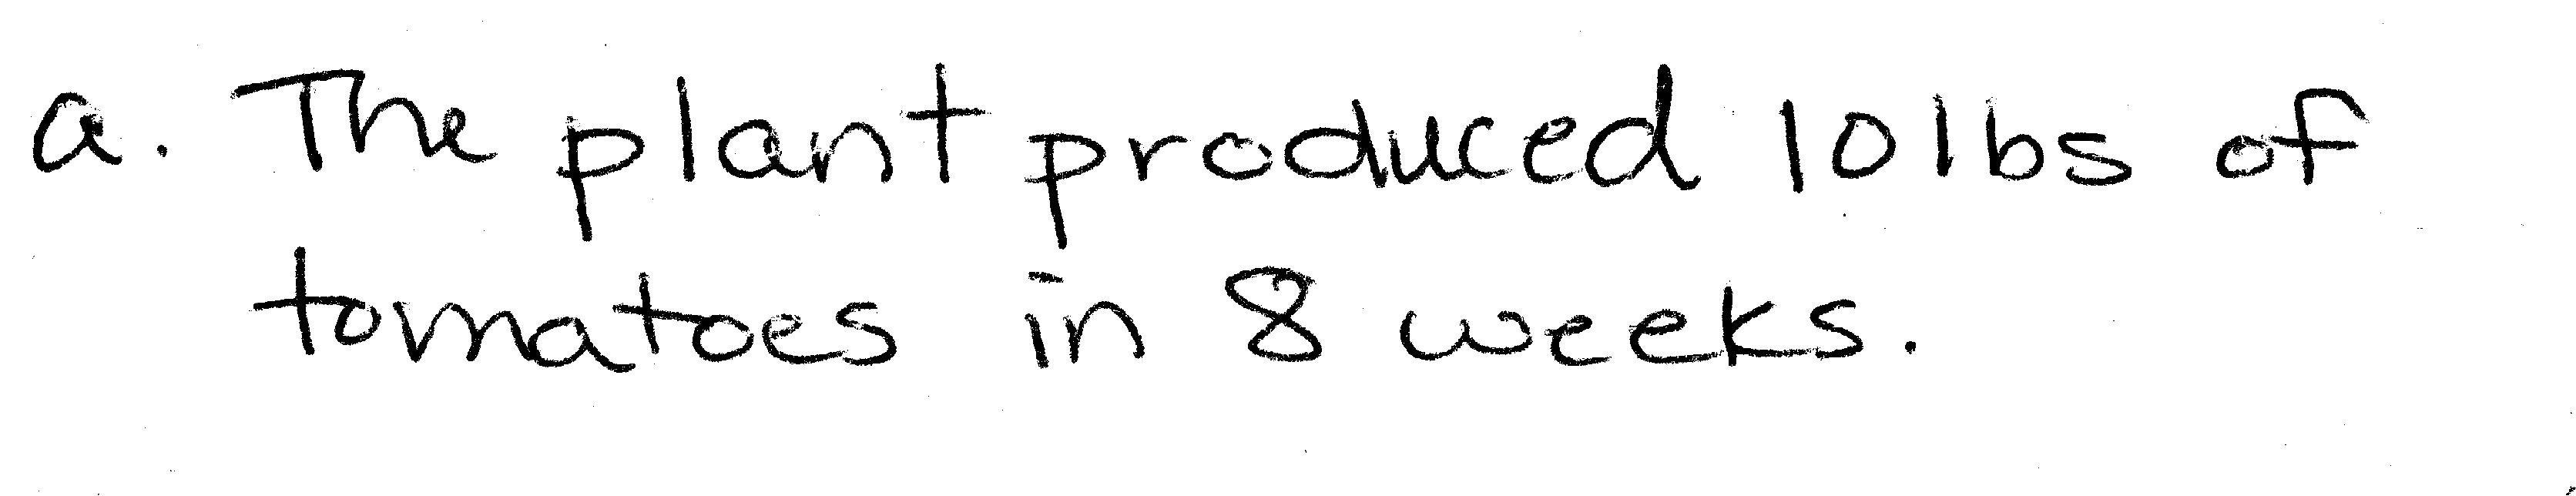 a. The plant produced 10 lbs of
tomatoes in 8 weeks.